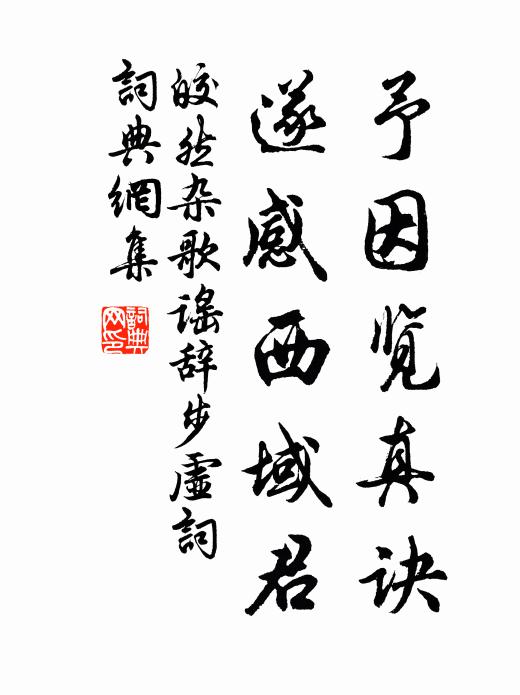 予因览真诀
遂感西域君
皎然杂歌谣辞步虚詞
詞典網集
詞典
网印